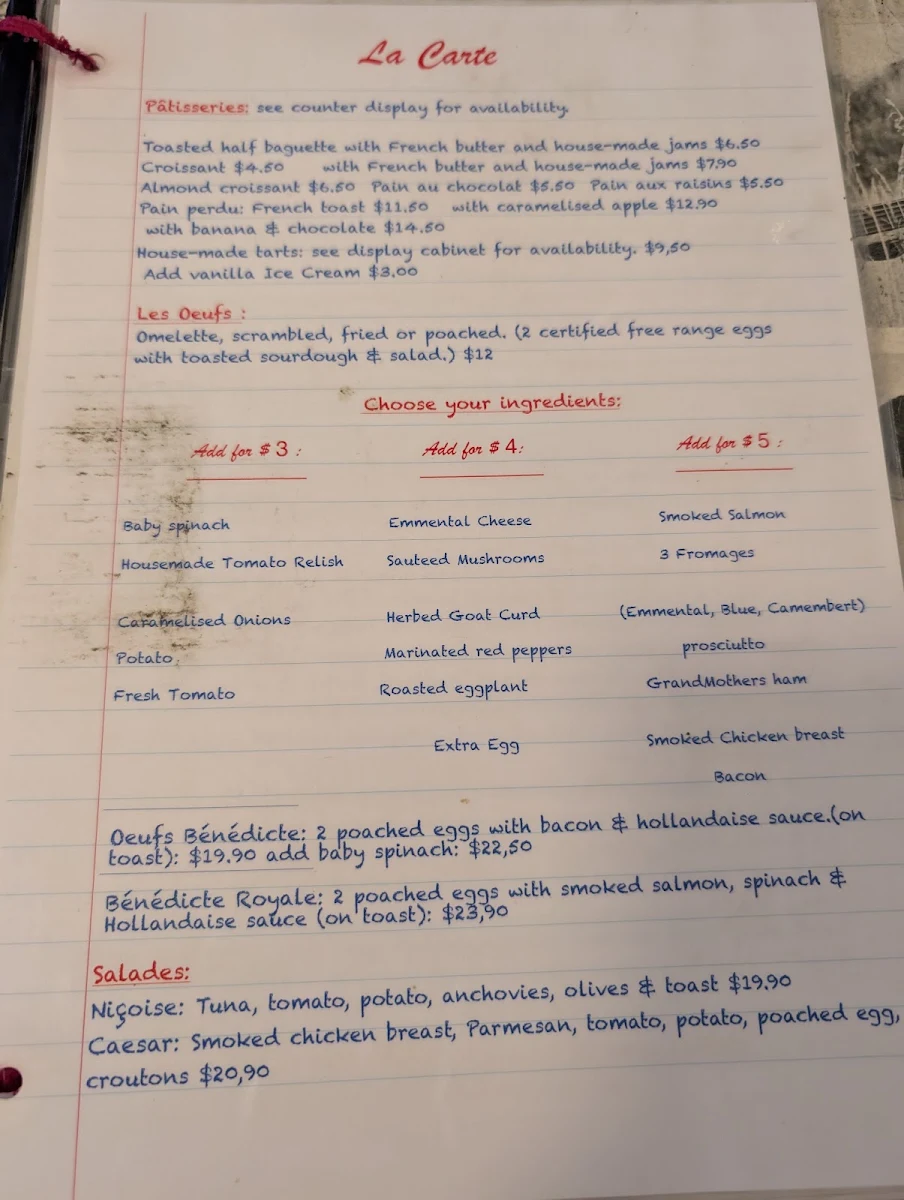 La Carte
Pâtisseries: see counter display for availability.
Toasted half baguette with French butter and house-made jams $6.50
Croissant $4.50 with French butter and house-made jams $7.90
Almond croissant $6.50 Pain au chocolat $5.50 Pain aux raisins $5.50
Pain perdu: French toast $11.50 with caramelised apple $12.90
with banana & chocolate $14.50
House-made tarts: see display cabinet for availability. $9,50
Add vanilla Ice Cream $3.00
Les Oeufs :
Omelette, scrambled, fried or poached. (2 certified free range eggs
with toasted sourdough & salad.) $12
Choose your ingredients:
Add for $ 3 : Add for $ 4: Add for $ 5 :
Baby spinach Emmental Cheese Smoked Salmon
Housemade Tomato Relish Sauteed Mushrooms 3 Fromages
Caramelised Onions Herbed Goat Curd (Emmental, Blue, Camembert)
Potato Marinated red peppers prosciutto
Fresh Tomato Roasted eggplant GrandMothers ham
Extra Egg Smoked Chicken breast
Bacon
Oeufs Bénédicte: 2 poached eggs with bacon & hollandaise sauce.(on
toast): $19.90 add baby spinach: $22,50
Bénédicte Royale: 2 poached eggs with smoked salmon, spinach &
Hollandaise sauce (on toast): $23,90
Salades:
Niçoise: Tuna, tomato, potato, anchovies, olives & toast $19.90
Caesar: Smoked chicken breast, Parmesan, tomato, potato, poached egg,
croutons $20,90